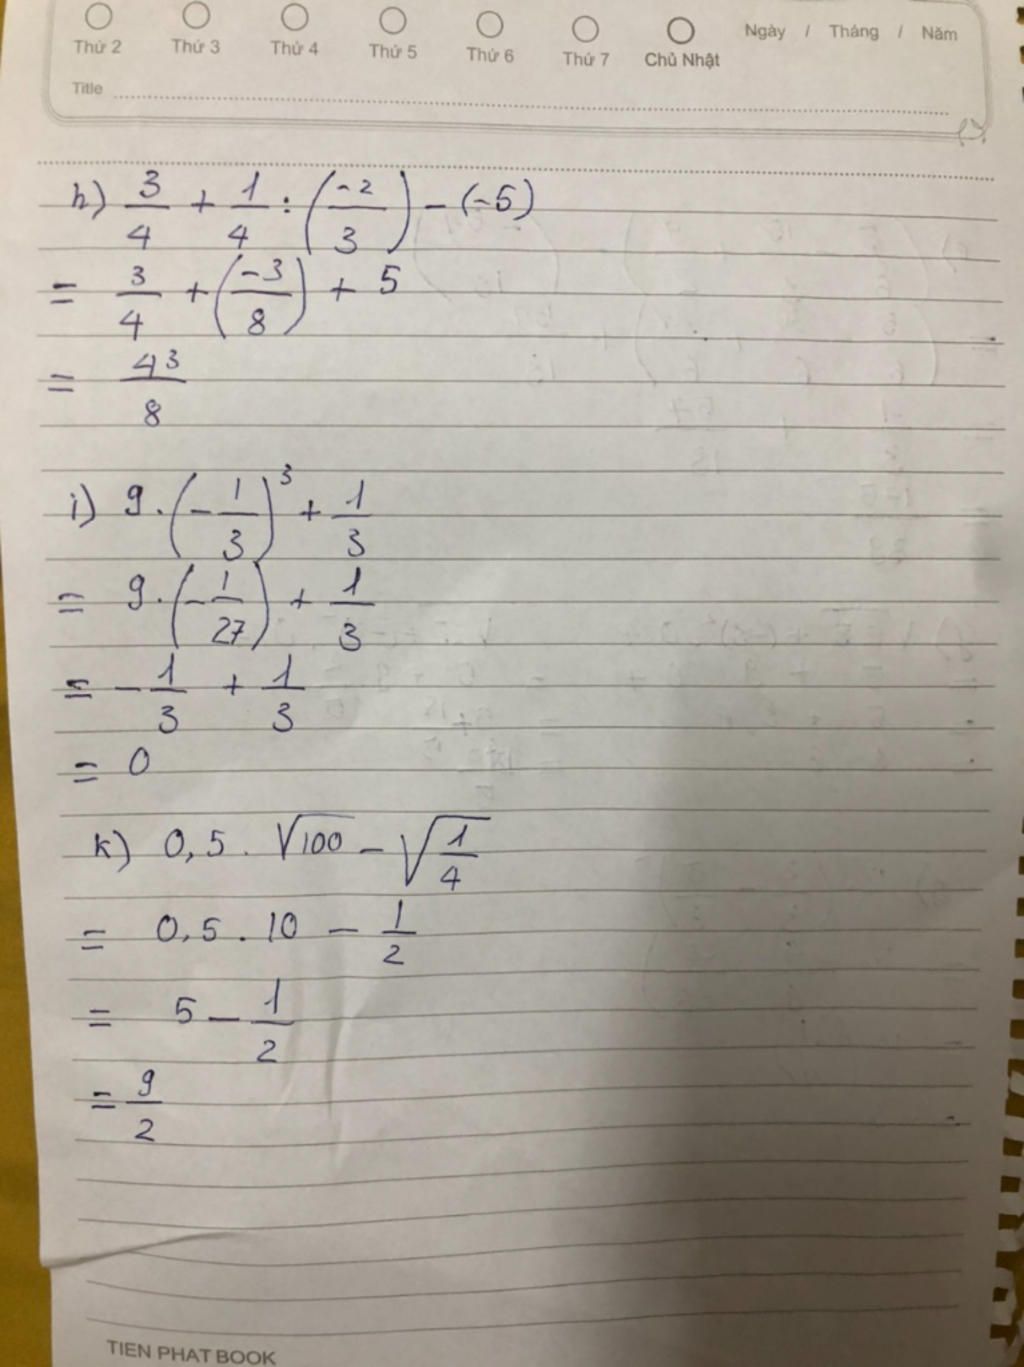 Thứ 2 Thứ 3 Thứ 4 Thứ 5 Thứ 6 Thứ 7 Chủ Nhật Ngày / Tháng / Năm
Title
h) 3/4 + 1/4 : (-2/3) - (-5)
= 3/4 + (-3/8) + 5
= 43/8
i) 9 . (-1/3)³ + 1/3
= 9 . (-1/27) + 1/3
= -1/3 + 1/3
= 0
k) 0,5 . √100 - √(1/4)
= 0,5 . 10 - 1/2
= 5 - 1/2
= 9/2
TIEN PHAT BOOK